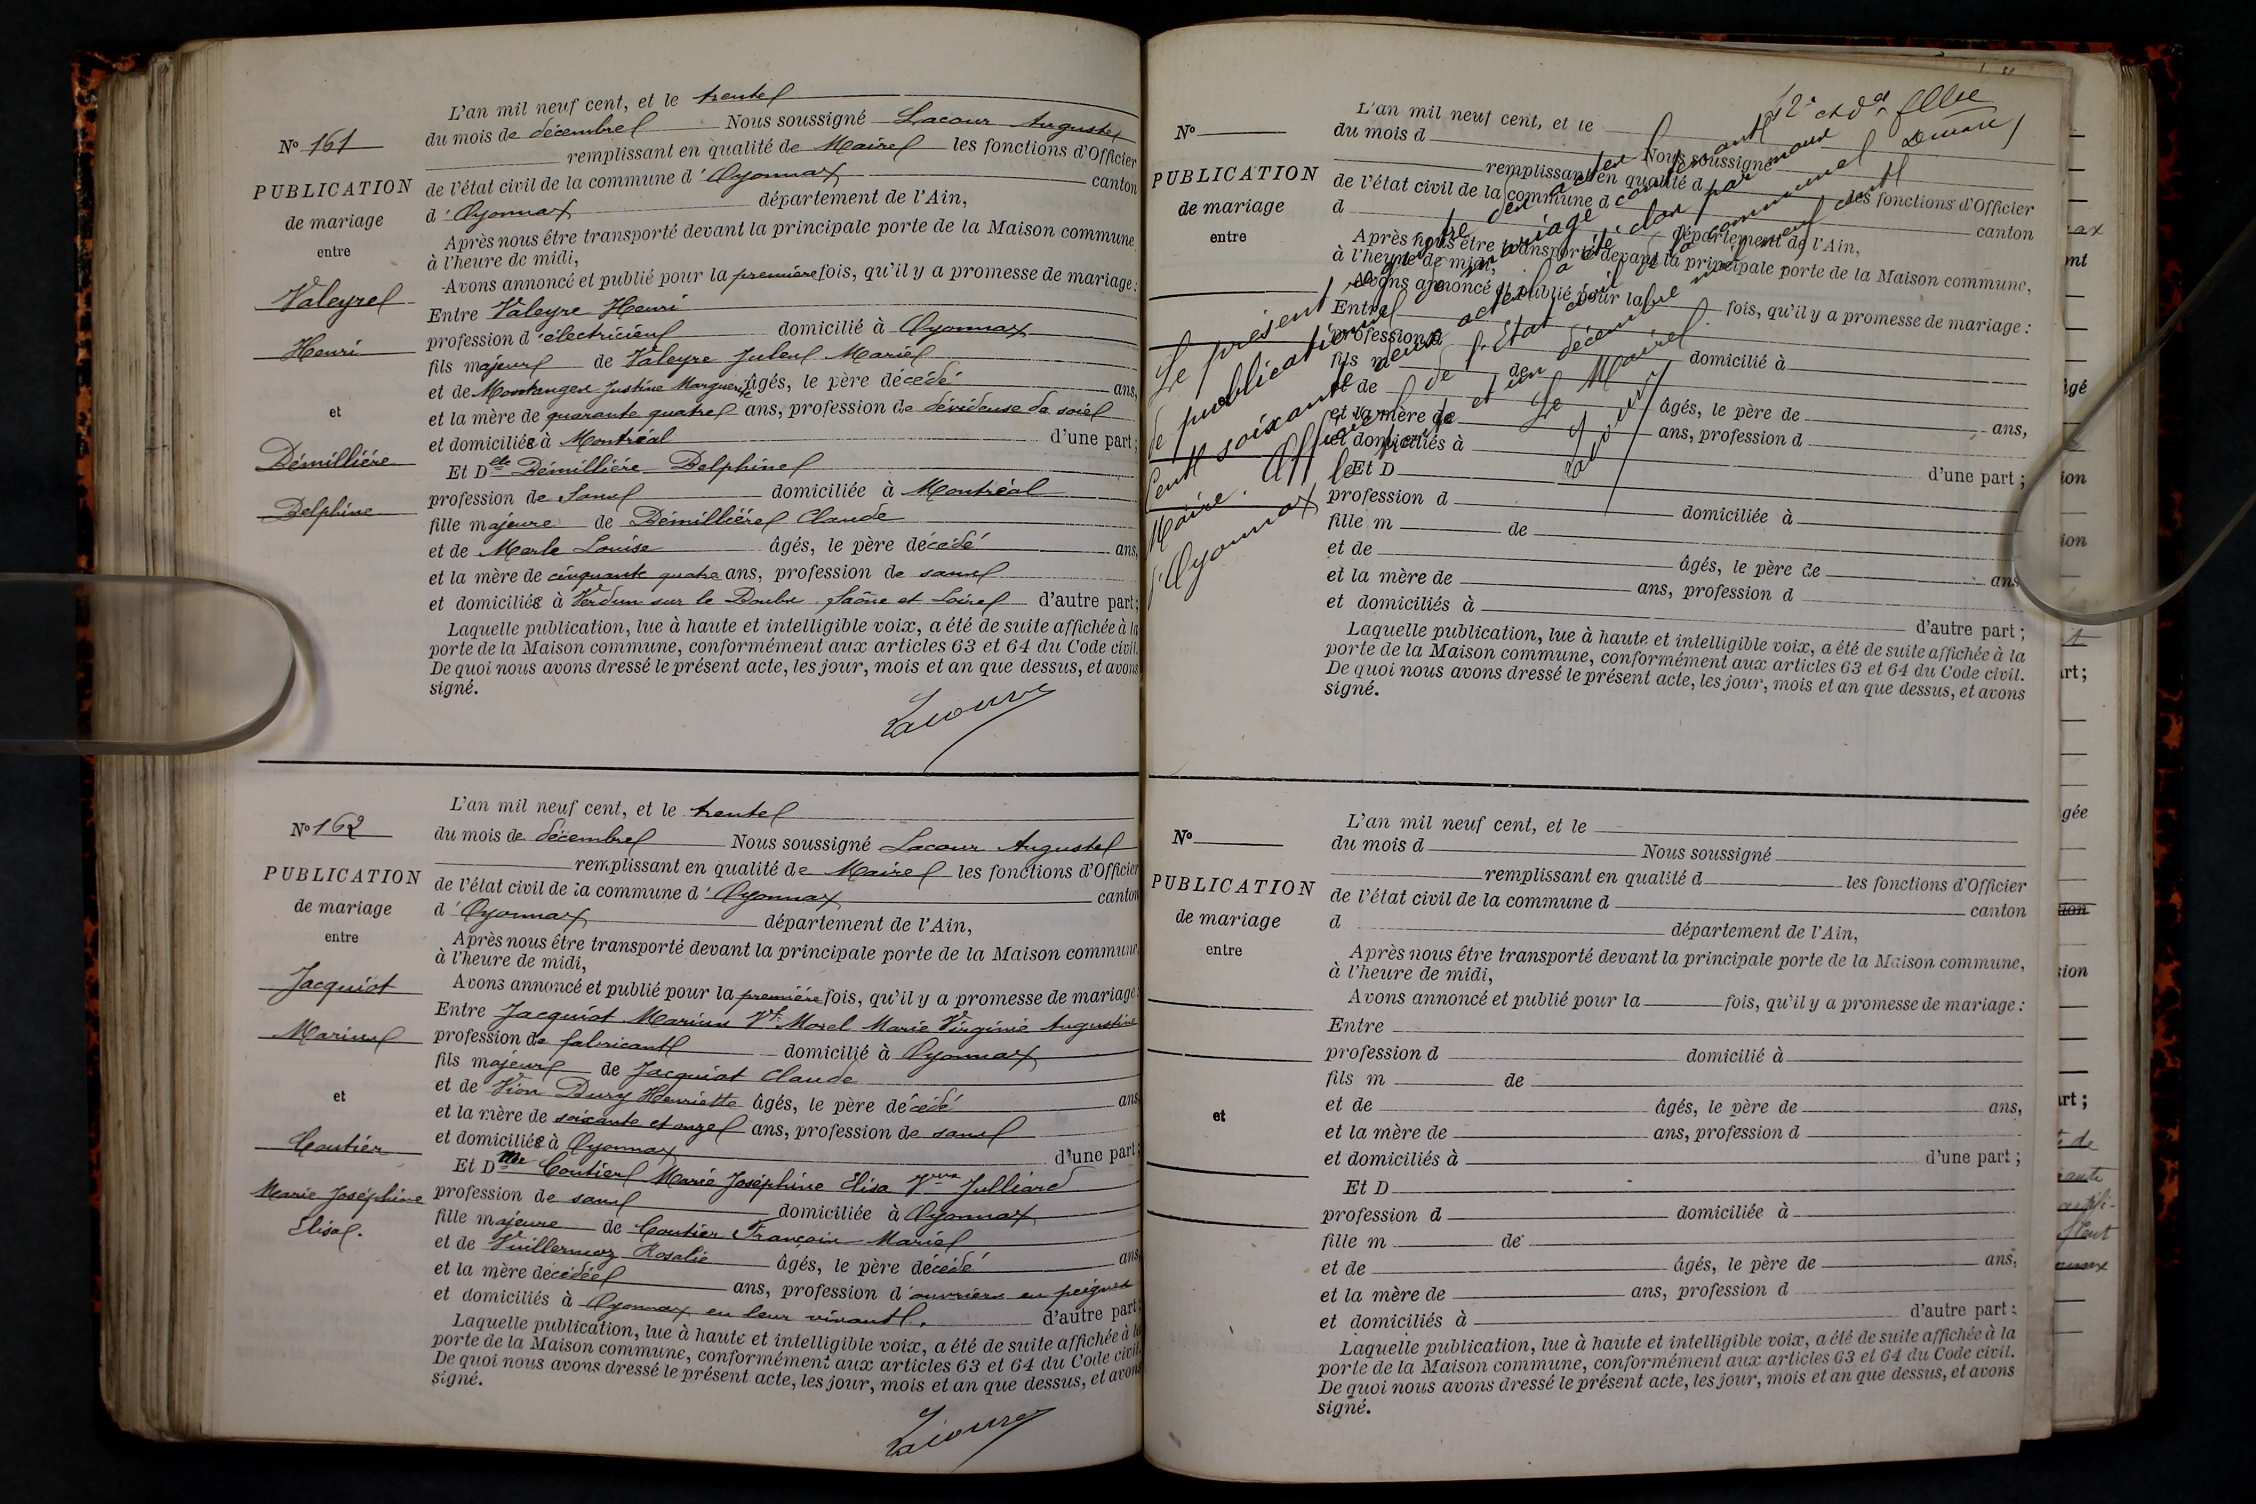 N° 161
PUBLICATION
de mariage
entre
Valeyre
Henri
et
Démillière
Delphine
L'an mil neuf cent, et le trente
du mois de décembre Nous soussigné Lacour Auguste
remplissant en qualité de Maire les fonctions d'Officier
de l'état civil de la commune d'Oyonnax canton
d'Oyonnax département de l'Ain,
Après nous être transporté devant la principale porte de la Maison commune
à l'heure de midi,
Avons annoncé et publié pour la première fois, qu'il y a promesse de mariage :
Entre Valeyre Henri
profession d'électricien domicilié à Oyonnax
fils majeur de Valeyre Jules Marie
et de Montangen Justine Marguerite âgés, le père décédé ans,
et la mère de quarante quatre ans, profession de dévideuse de soie
et domiciliée à Montréal d'une part ;
Et Delle Démillière Delphine
profession de Sans domiciliée à Montréal
fille majeure de Démillière Claude
et de Merle Louise âgés, le père décédé ans,
et la mère de cinquante quatre ans, profession de sans
et domiciliée à Verdun sur le Doubs Saône et Loire d'autre part ;
Laquelle publication, lue à haute et intelligible voix, a été de suite affichée à la
porte de la Maison commune, conformément aux articles 63 et 64 du Code civil.
De quoi nous avons dressé le présent acte, les jour, mois et an que dessus, et avons
signé.
Lacour
N° 162
PUBLICATION
de mariage
entre
Jacquiot
Marius
et
Coutier
Marie Joséphine
Elisa.
L'an mil neuf cent, et le trente
du mois de décembre Nous soussigné Lacour Auguste
remplissant en qualité de Maire les fonctions d'Officier
de l'état civil de la commune d'Oyonnax canton
d'Oyonnax département de l'Ain,
Après nous être transporté devant la principale porte de la Maison commune,
à l'heure de midi,
Avons annoncé et publié pour la première fois, qu'il y a promesse de mariage :
Entre Jacquiot Marius Vf Morel Marie Virginie Augustine
profession de fabricant domicilié à Oyonnax
fils majeur de Jacquiot Claude
et de Vion Dury Henriette âgés, le père décédé ans
et la mère de soixante et onze ans, profession de sans
et domiciliée à Oyonnax d'une part ;
Et Dme Coutier Marie Joséphine Elisa Vve Julliard
profession de sans domiciliée à Oyonnax
fille majeure de Coutier François Marie
et de Vuillermoz Rosalie âgés, le père décédé ans
et la mère décédée ans, profession d'ouvriers en peignes
et domiciliés à Oyonnax en leur vivant. d'autre part ;
Laquelle publication, lue à haute et intelligible voix, a été de suite affichée à la
porte de la Maison commune, conformément aux articles 63 et 64 du Code civil.
De quoi nous avons dressé le présent acte, les jour, mois et an que dessus, et avons
signé.
Lacour
N°
PUBLICATION
de mariage
entre
L'an mil neuf cent, et le
du mois d Nous soussigné
remplissant en qualité d les fonctions d'Officier
de l'état civil de la commune d canton
d département de l'Ain,
Après nous être transporté devant la principale porte de la Maison commune,
à l'heure de midi,
Avons annoncé et publié pour la fois, qu'il y a promesse de mariage :
Entre
profession d domicilié à
fils m de
et de âgés, le père de ans,
et la mère de ans, profession d
et domiciliés à d'une part ;
Et D
profession d domiciliée à
fille m de
et de âgés, le père de ans
et la mère de ans, profession d
et domiciliés à d'autre part ;
Laquelle publication, lue à haute et intelligible voix, a été de suite affichée à la
porte de la Maison commune, conformément aux articles 63 et 64 du Code civil.
De quoi nous avons dressé le présent acte, les jour, mois et an que dessus, et avons
signé.
Le présent registre des actes
de publications de mariage contenant
cent soixante deux actes a été clos par nous
Maire Officier de l'état civil de la commune
d'Oyonnax le trente et un décembre mil neuf cent
Le Maire
Lacour
N°
PUBLICATION
de mariage
entre
et
L'an mil neuf cent, et le
du mois d Nous soussigné
remplissant en qualité d les fonctions d'Officier
de l'état civil de la commune d canton
d département de l'Ain,
Après nous être transporté devant la principale porte de la Maison commune,
à l'heure de midi,
Avons annoncé et publié pour la fois, qu'il y a promesse de mariage :
Entre
profession d domicilié à
fils m de
et de âgés, le père de ans,
et la mère de ans, profession d
et domiciliés à d'une part ;
Et D
profession d domiciliée à
fille m de
et de âgés, le père de ans,
et la mère de ans, profession d
et domiciliés à d'autre part :
Laquelle publication, lue à haute et intelligible voix, a été de suite affichée à la
porte de la Maison commune, conformément aux articles 63 et 64 du Code civil.
De quoi nous avons dressé le présent acte, les jour, mois et an que dessus, et avons
signé.